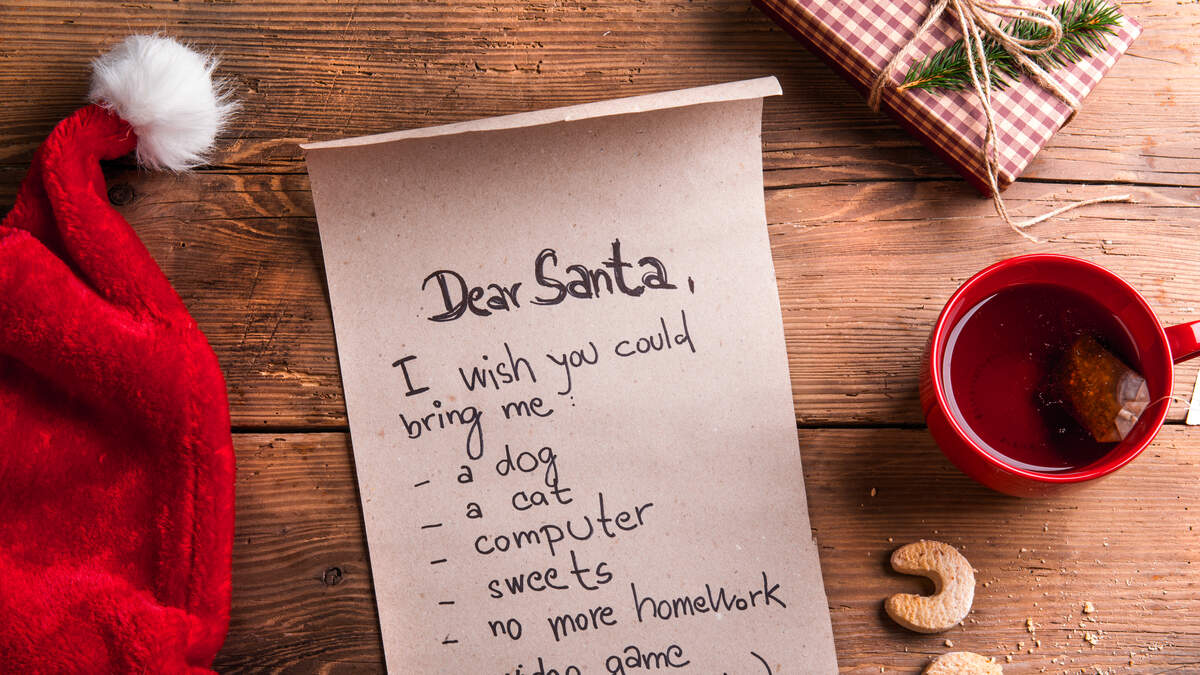 Dear Santa,
I wish you could
bring me:
- a dog
- a cat
- computer
- sweets
- no more homework
video game